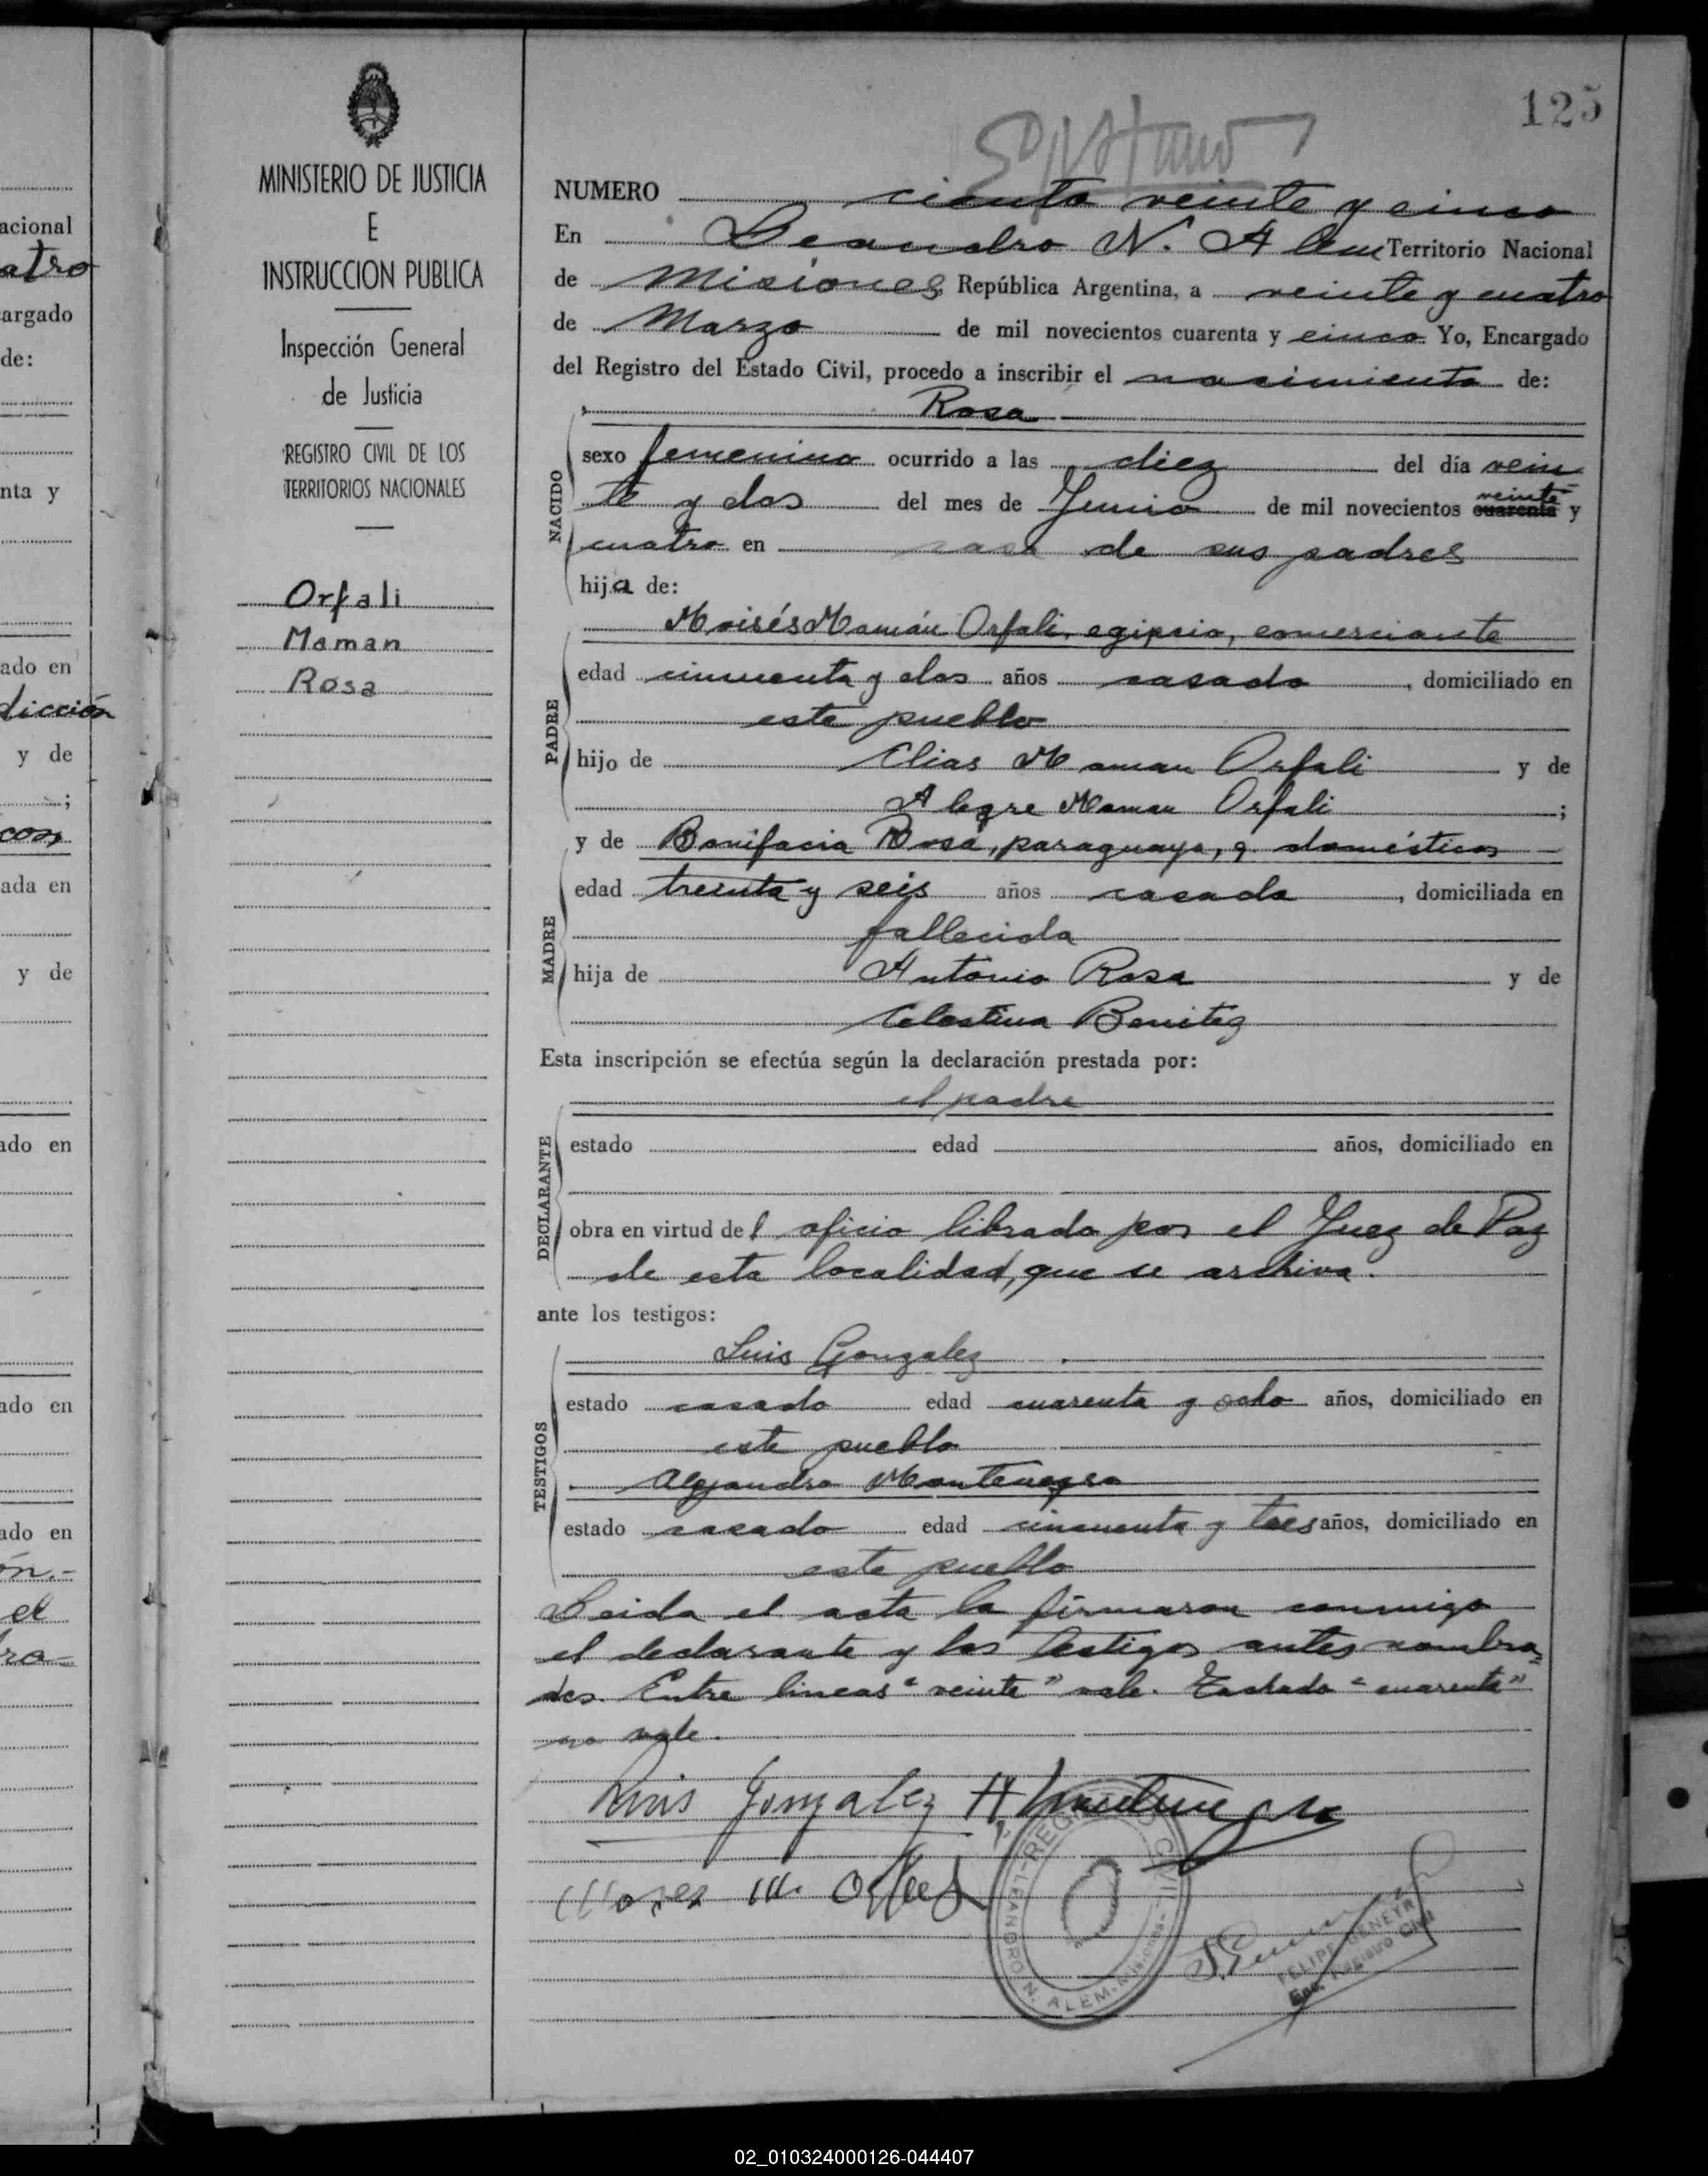 125
MINISTERIO DE JUSTICIA
E
INSTRUCCION PUBLICA
Inspección General
de Justicia
REGISTRO CIVIL DE LOS
TERRITORIOS NACIONALES
Orfali
Maman
Rosa
NUMERO ciento veinte y cinco
En Leandro N. Alem Territorio Nacional
de Misiones República Argentina, a veinte y cuatro
de Marzo de mil novecientos cuarenta y cinco Yo, Encargado
del Registro del Estado Civil, procedo a inscribir el nacimiento de:
Rosa
NACIDO
sexo femenino ocurrido a las diez del día vein
te y dos del mes de Junio de mil novecientos cuarenta veinte y
cuatro en casa de sus padres
hija de:
PADRE
Moisés Mamán Orfali, egipcio, comerciante
edad cincuenta y dos años casado, domiciliado en
este pueblo
hijo de Elias Maman Orfali y de
Alegre Maman Orfali;
MADRE
y de Bonifacia Rosa, paraguaya, q. domésticos
edad treinta y seis años casada, domiciliada en
fallecida
hija de Antonio Rosa y de
Celestina Benitez
Esta inscripción se efectúa según la declaración prestada por:
el padre
DECLARANTE
estado edad años, domiciliado en
obra en virtud del oficio librado por el Juez de Paz
de esta localidad, que se archiva.
ante los testigos:
TESTIGOS
Luis Gonzalez
estado casado edad cuarenta y ocho años, domiciliado en
este pueblo
Alejandro Montenegro
estado casado edad cincuenta y tres años, domiciliado en
este pueblo
Leida el acta la firmaron conmigo
el declarante y los testigos antes nombra
dos. Entre lineas "veinte" vale. Tachado "cuarenta"
no vale.
Luis Gonzalez A Montenegro
REGISTRO CIVIL
LEANDRO N. ALEM - Misiones
FELIPE GENEYR
Enc. Registro Civil
acional
atro
argado
de:
nta y
ado en
dicción
y de
;
con
ada en
y de
ado en
ado en
ado en
ón.-
el
ra-
02_010324000126-044407